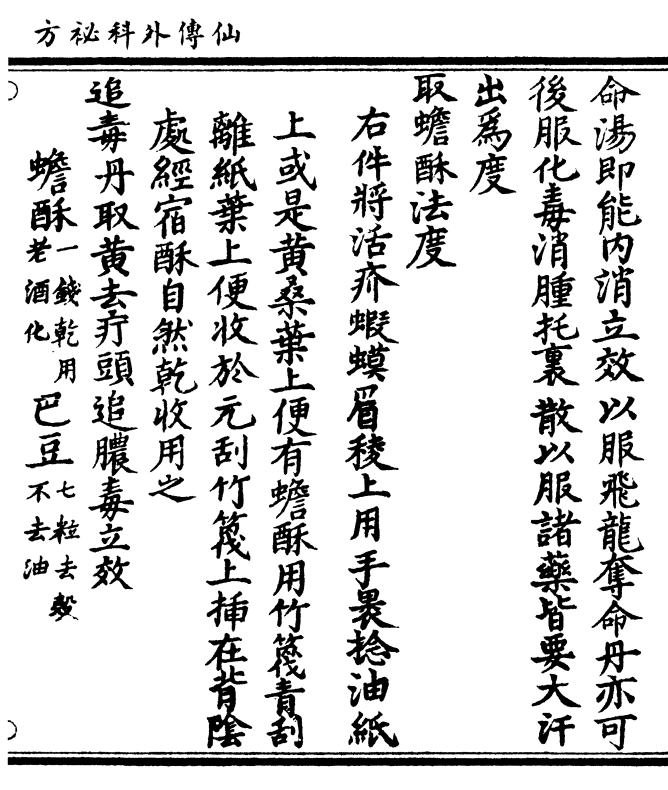 仙傳外科祕方
命湯即能內消立效以服飛龍奪命丹亦可
後服化毒消腫托裏散以服諸藥皆要大汗
出爲度
取蟾酥法度
右件將活疥蝦蟆眉稜上用手裹捻油紙
上或是黃桑葉上便有蟾酥用竹篾青刮
離紙葉上便收於元刮竹篾上揷在背陰
處經宿酥自然乾收用之
追毒丹取黃去疔頭追膿毒立效
蟾酥一錢乾用老酒化 巴豆七粒去殼不去油